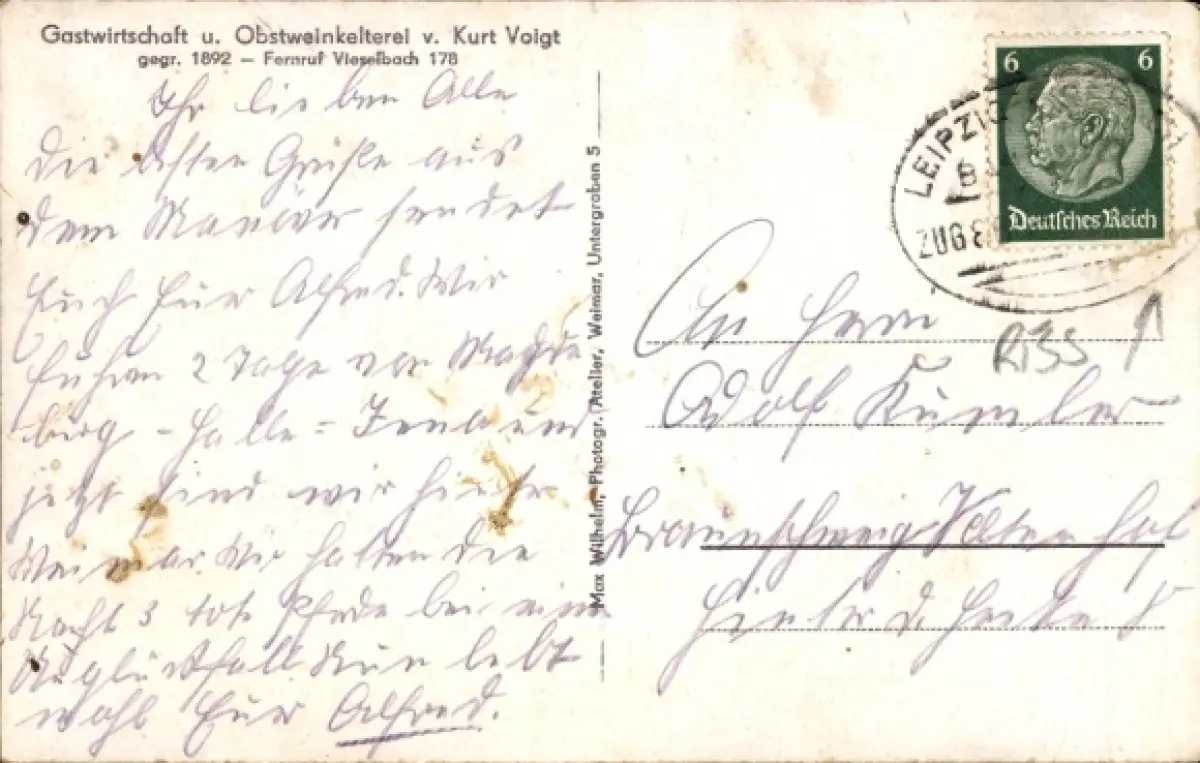 Gastwirtschaft u. Obstweinkelterei v. Kurt Voigt
gegr. 1892 — Fernruf Vieselbach 178
Ihr lieben Alle
die Grüße aus
dem Manöver sendet
Euch Euer Alfred. Wir
fuhren 2 Tage von Magde
burg - Halle = Jena und
jetzt sind wir hinter
Weimar. Wir hatten die
Nacht 3 tote Pferde bei ein
Unglücksfall. Nun lebt
wohl Euer Alfred.
Max Wilhelm, Photogr. Atelier, Weimar, Untergraben 5
6 6
Deutsches Reich
LEIPZIG
ZUG
An Herrn
R35
Adolf
Braunschweig
Hinter d.